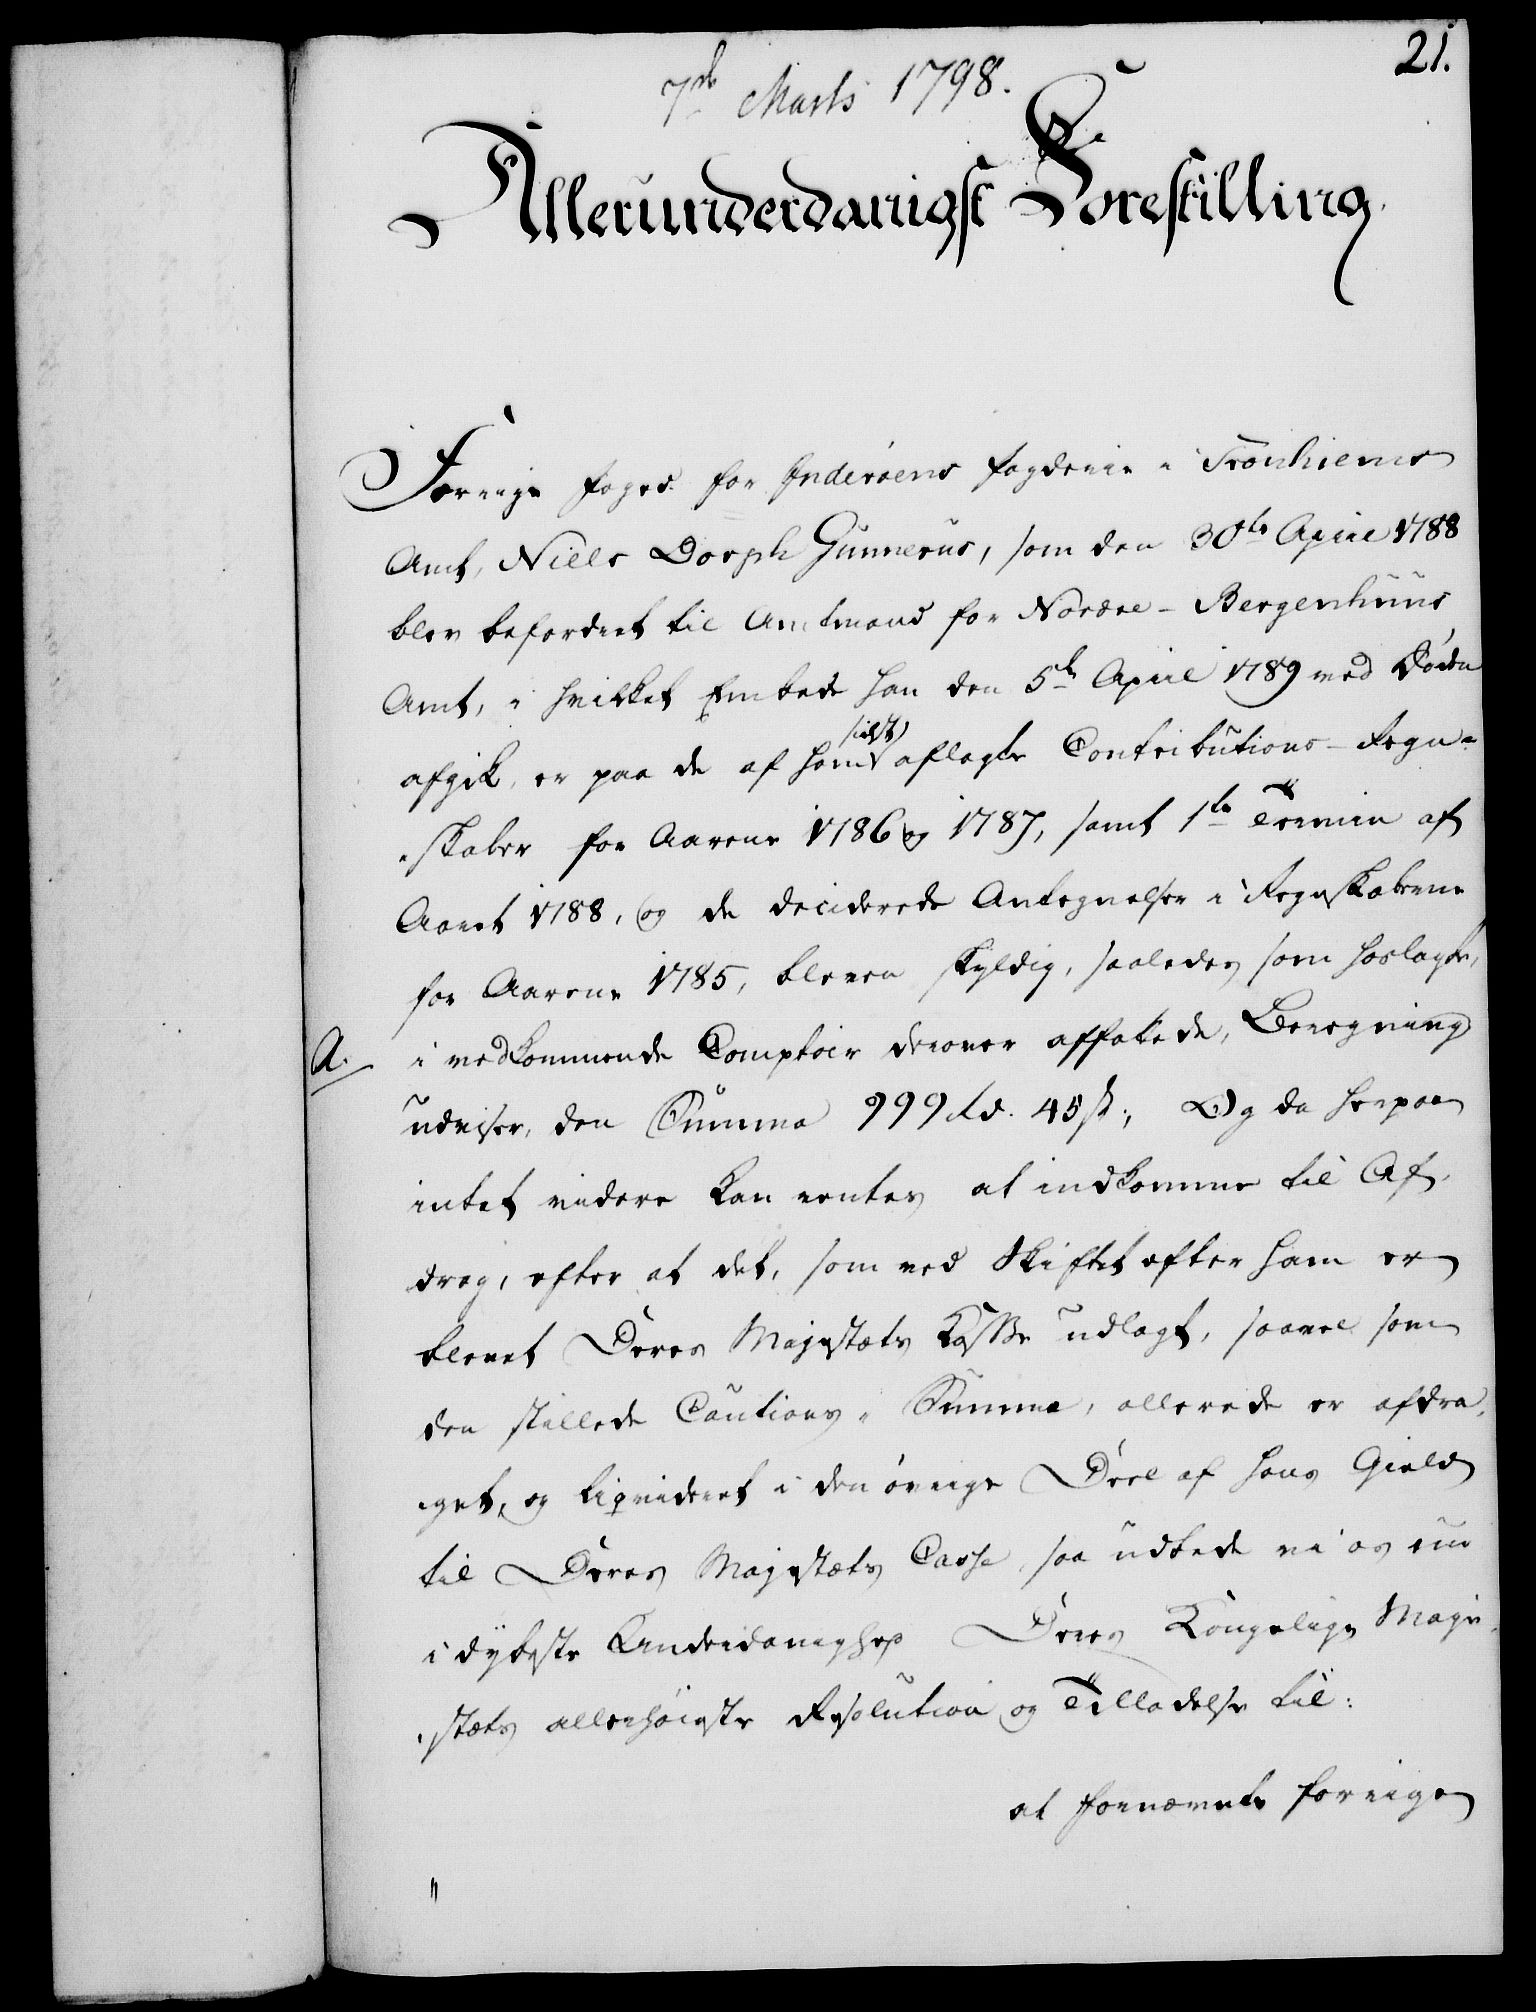 21.
7de Marts 1798.
Allerunderdanigst Forestilling.
Forrige Foged for Inderøens Fogderie i Tronhiems
Amt, Niels Dorph Gunnerus, som den 30te April 1788
blev befordret til Amtmand for Nordre-Bergenhuus
Amt, i hvilket Embede han den 5te April 1789 ved Døden
afgik, er paa de af ham sidst aflagte Contributions-Regn-
skaber for Aarene 1786 og 1787, samt 1te Termin af
Aaret 1788, og de deciderede Antegnelser i Regnskaberne
for Aarene 1785, bleven skyldig, saaledes som hoslagte,
A. i vedkommende Comptoir derover affattede, Beregning
udviser, den Summa 999 rd. 45 s.; Og da herpaa
intet videre kan ventes at indkomme til Af-
drag, efter at det, som ved Skiftet efter ham er
blevet Deres Majestæts Kasse udlagt, saavel som
den stillede Cautions-Summa, allerede er afdra-
get, og liqvideret i den øvrige Deel af hans Gield
til Deres Majestæts Casse, saa udbede vi os nu
i dybeste Underdanighed Deres Kongelige Maje-
stæts allerhøieste Resolution og Tilladelse til:
at fornævnte forrige